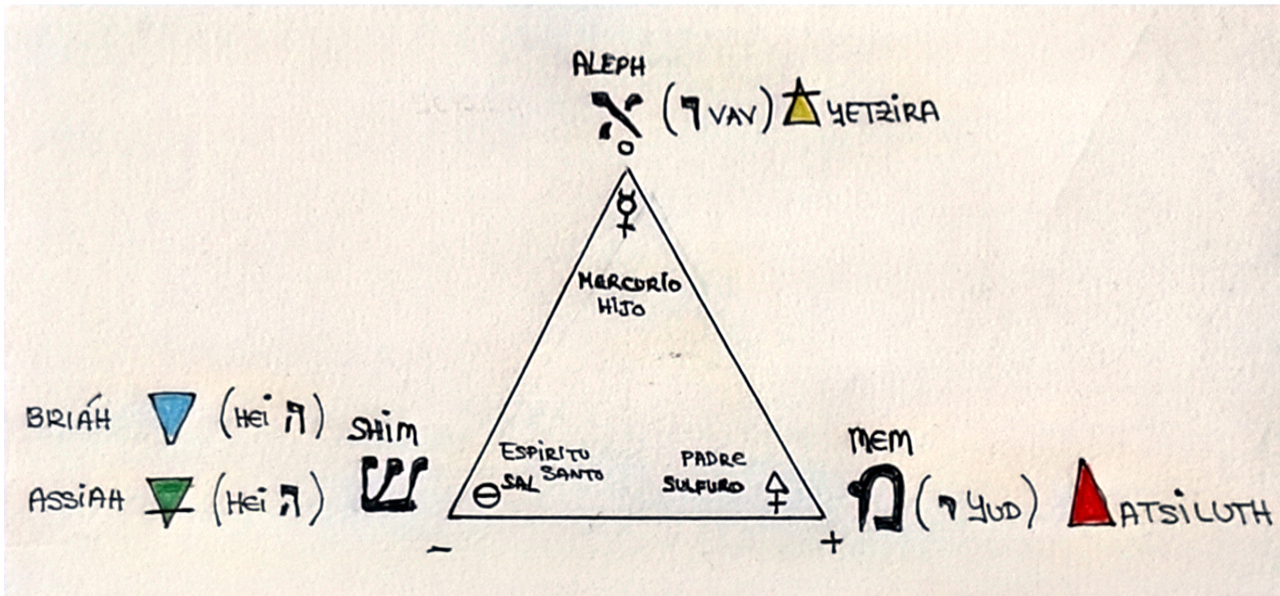 ALEPH
א (ו VAV) YETZIRA
0
☿
MERCURIO
HIJO
BRIÁH (HEI ה)
SHIM
ASSIAH (HEI ה) ש
ESPIRITU
SANTO
SAL
PADRE
SULFURO
MEM
ם (י YUD) ATSILUTH
-
+